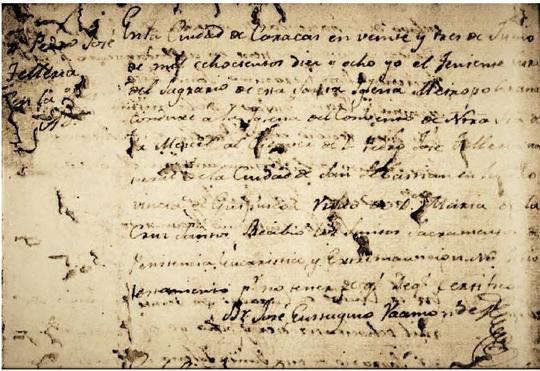 Pedro José
Telleria
En la Ciudad de Caracas en veinte y tres de Junio
de mil echocientos diez y ocho yo el Teniente Cura
del Sagrario de esta Santa Iglesia Metropolitana
conduxe a la Iglesia del Convento de Ntra Sra de
la Merced al de D. Pedro José Telleria
de la Ciudad de San Sebastian en la Pro
vincia de Guipuzcoa Viudo de Da. Maria de la
Cruz Santos Recibio los Santos Sacramentos de
Penitencia, Eucaristia y Extremauncion No hizo
testamento pr. no tener de qe. certifico
Br. José Eustaquio Vaamonde